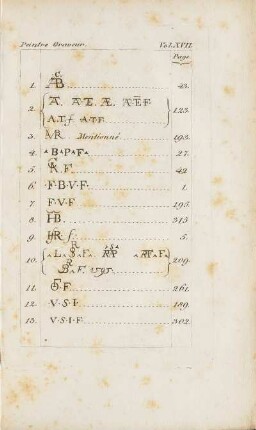 Peintre Graveur. Vol. XVII.
Page
1. AB 43.
2. A. A.T. Æ. A.E.F.
A.T.f A.T.F. 123.
3. MR. Mentionné 193.
4. A.B.A.P.A.F.A. 27.
5. R.F. 42.
6. F.B.V.F. 1.
7. F.V.F. 195.
8. HB. 313
9. HR f. 5.
10. 209.
B.F. 1595.
11. F. 261.
12. V.S.I. 189.
13. V.S.I.F. 302.